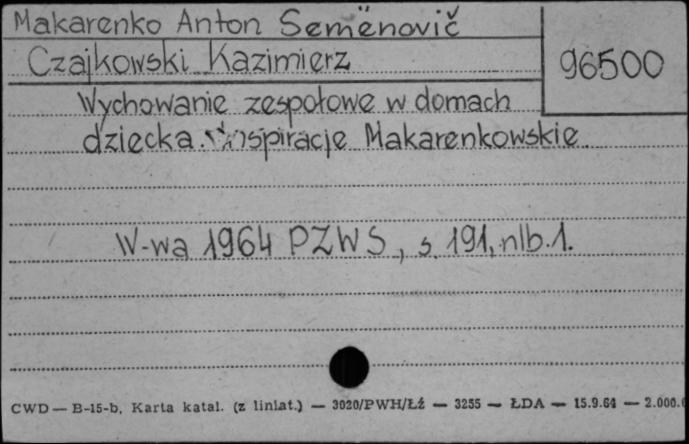 Makarenko Anton Semënovič
Czajkowski Kazimierz
96500
Wychowanie zespołowe w domach
dziecka. Inspiracje Makarenkowskie
W-wa 1964 PZWS, s. 191, nlb. 1.
CWD — B-15-b, Karta katal. (z liniat.) — 3020/PWH/Łź — 3255 — ŁDA — 15.9.61 — 2.000.0